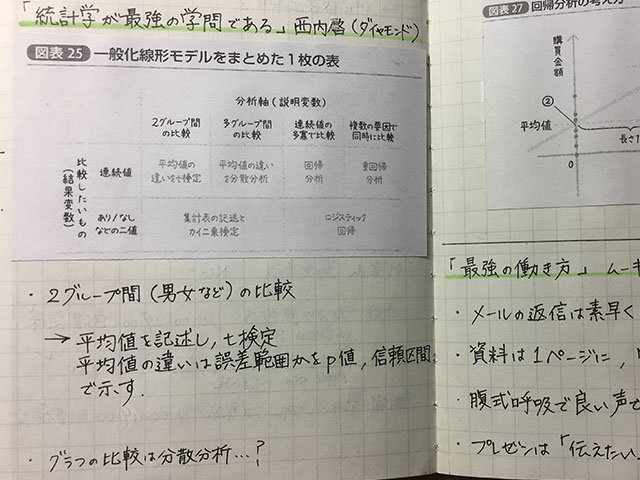 「統計学が最強の学問である」西内啓(ダイヤモンド)
図表25 一般化線形モデルをまとめた1枚の表
分析軸(説明変数)
2グループ間の比較
多グループ間の比較
連続値の多寡で比較
複数の要因で同時に比較
比較したいもの(結果変数)
連続値
平均値の違いをt検定
平均値の違いを分散分析
回帰分析
重回帰分析
あり/なしなどの二値
集計表の記述とカイ二乗検定
ロジスティック回帰
・2グループ間(男女など)の比較
→平均値を記述し,t検定
平均値の違いは誤差範囲かをp値,信頼区間
で示す.
・グラフの比較は分散分析…?
図表27 回帰分析の考え方
購買金額
②
平均値
0
長さ
「最強の働き方」ムーギ
・メールの返信は素早く
・資料は1ページに,
・腹式呼吸で良い声で
・プレゼンは「伝えたい